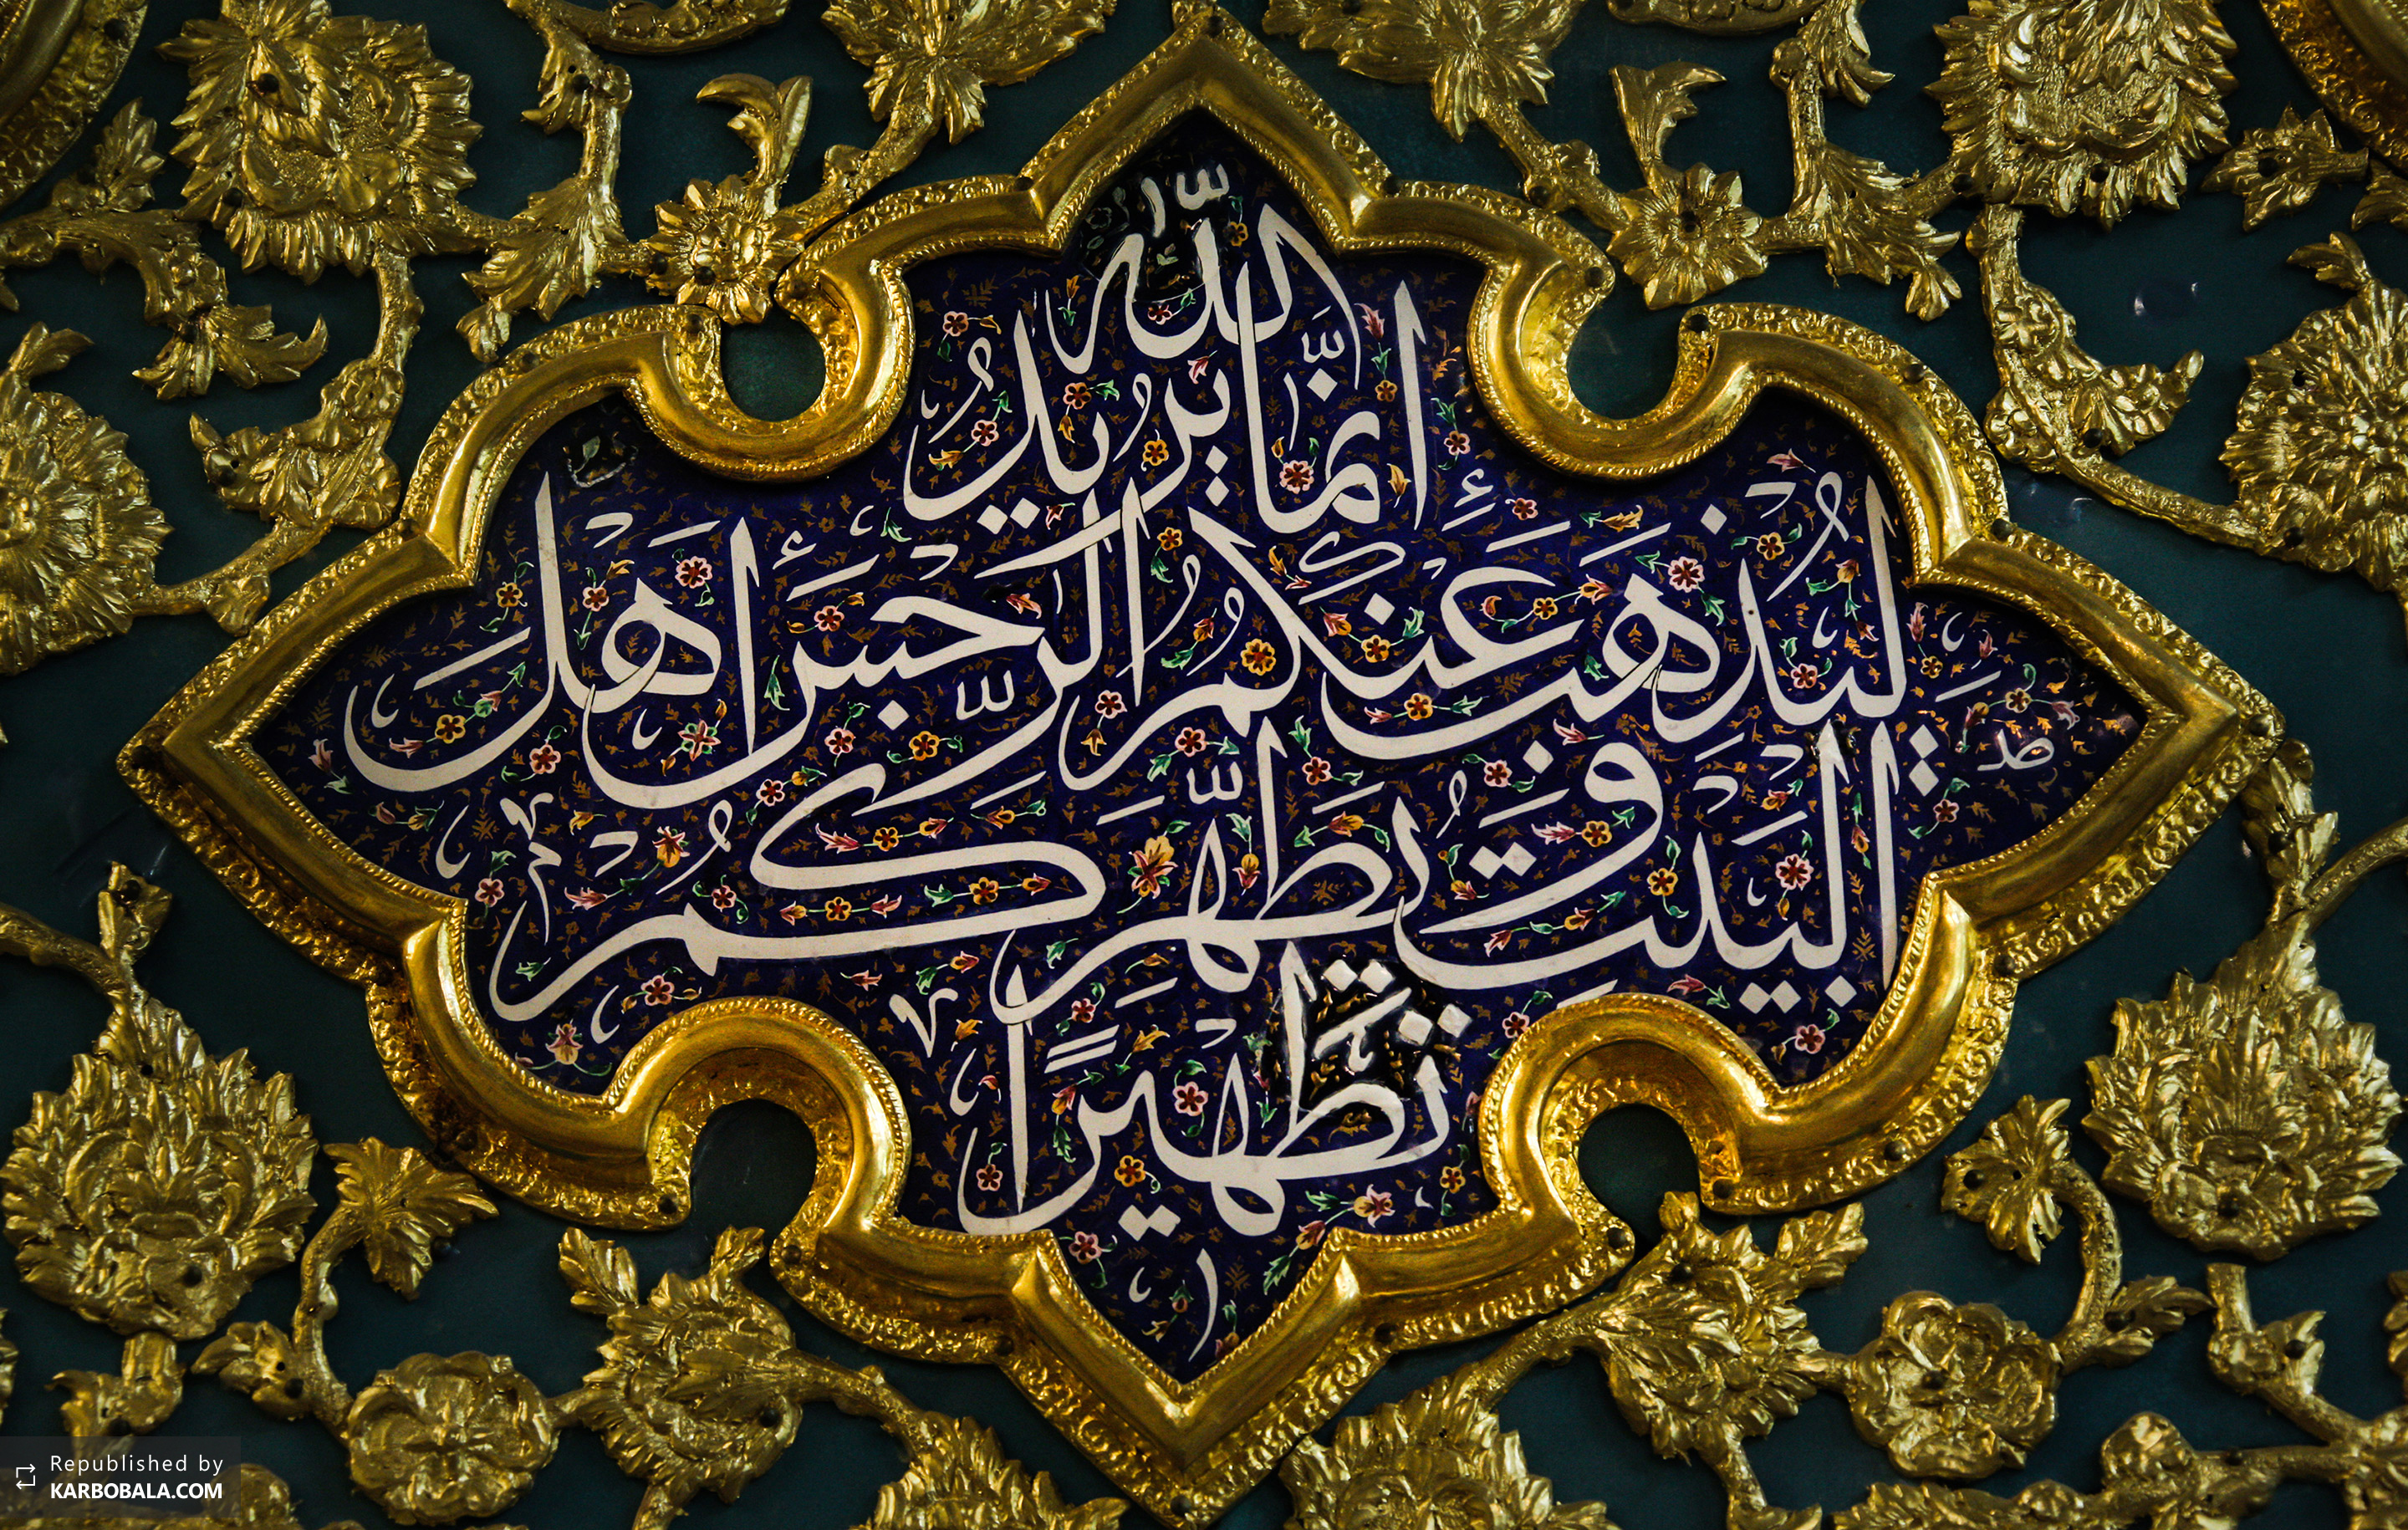 إِنَّمَا يُرِيدُ اللَّهُ
لِيُذْهِبَ عَنْكُمُ الرِّجْسَ أَهْلَ
الْبَيْتِ وَيُطَهِّرَكُمْ
تَطْهِيرًا
Republished by
KARBOBALA.COM